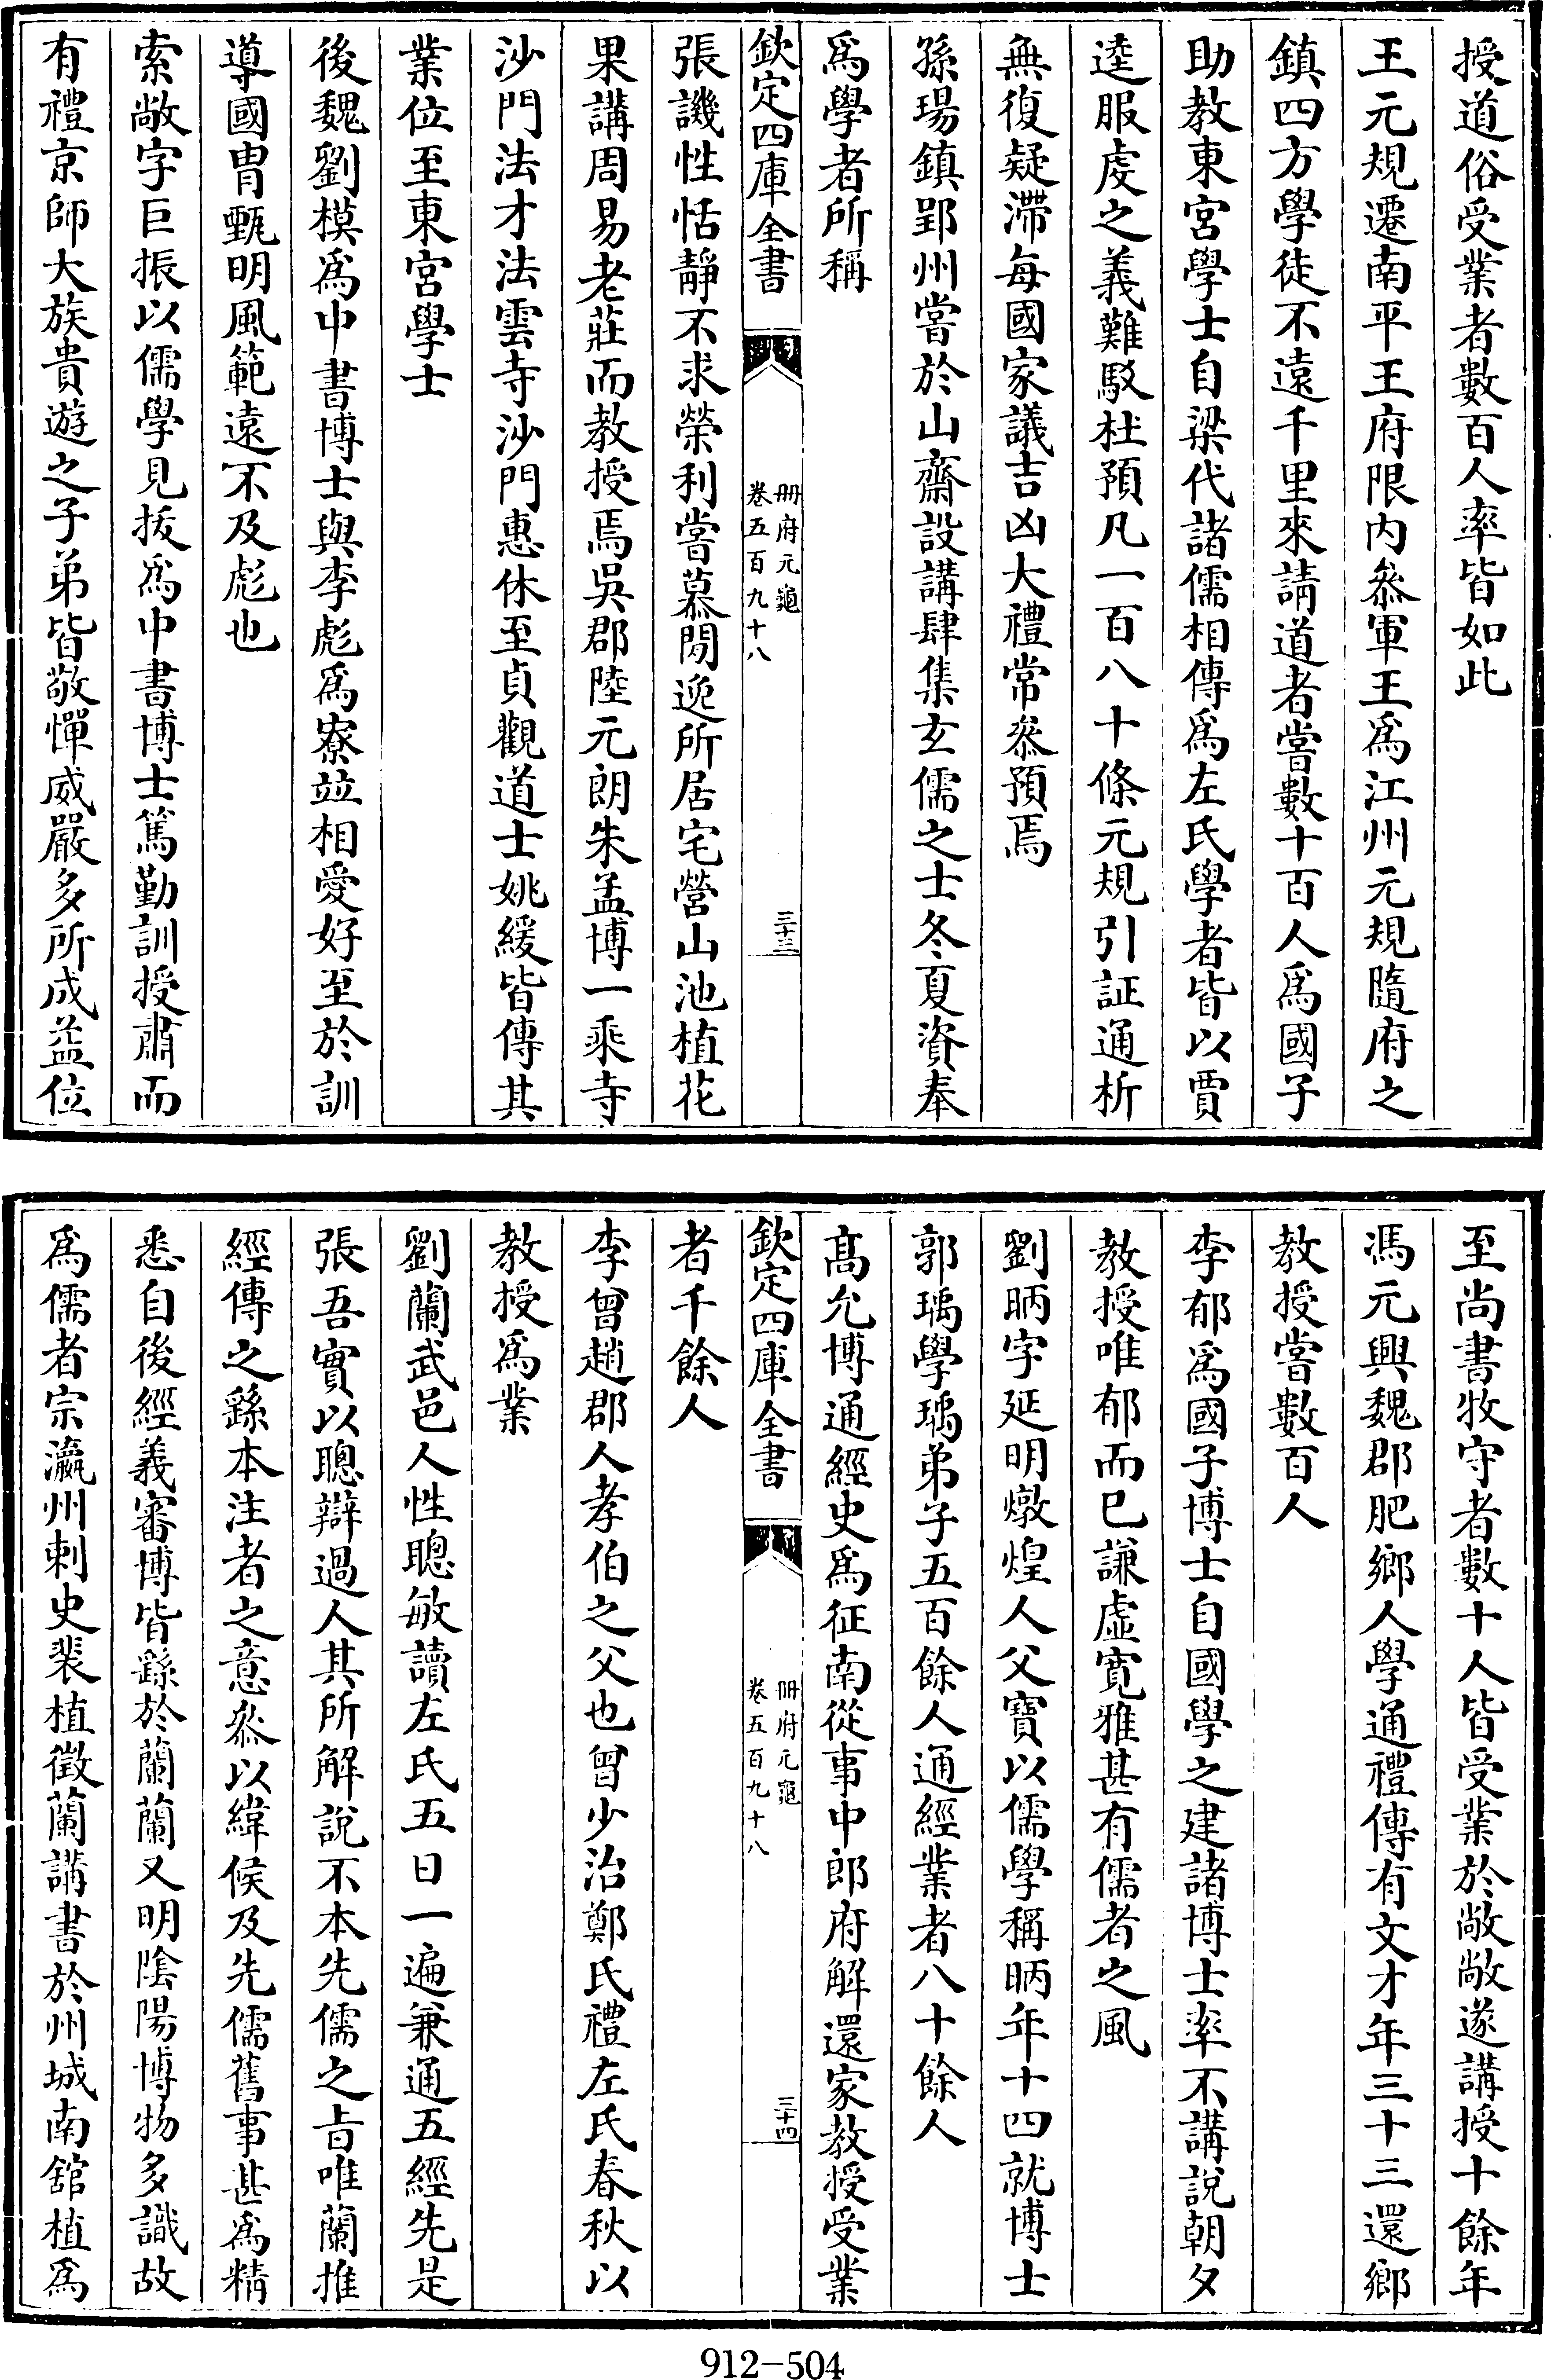 授道俗受業者數百人率皆如此
王元規遷南平王府限内叅軍王爲江州元規隨府之
鎮四方學徒不遠千里來請道者嘗數十百人爲國子
助教東宮學士自梁代諸儒相傳爲左氏學者皆以賈
逵服虔之義難駁杜預凡一百八十條元規引証通析
無復疑滯每國家議吉凶大禮常叅預焉
孫瑒鎮郢州嘗於山齋設講肆集玄儒之士冬夏資奉
爲學者所稱
欽定四庫全書
冊府元龜
卷五百九十八
三十三
張譏性恬靜不求榮利嘗慕閒逸所居宅營山池植花
果講周易老莊而教授焉吳郡陸元朗朱孟博一乘寺
沙門法才法雲寺沙門惠休至貞觀道士姚緩皆傳其
業位至東宮學士
後魏劉模爲中書博士與李彪爲寮竝相愛好至於訓
導國胄甄明風範遠不及彪也
索敞字巨振以儒學見拔爲中書博士篤勤訓授肅而
有禮京師大族貴遊之子弟皆敬憚威嚴多所成益位
至尚書牧守者數十人皆受業於敞敞遂講授十餘年
馮元興魏郡肥鄉人學通禮傳有文才年三十三還鄉
教授嘗數百人
李郁爲國子博士自國學之建諸博士率不講說朝夕
教授唯郁而已謙虛寬雅甚有儒者之風
劉昞字延明燉煌人父寶以儒學稱昞年十四就博士
郭瑀學瑀弟子五百餘人通經業者八十餘人
髙允博通經史爲征南從事中郎府解還家教授受業
欽定四庫全書
冊府元龜
卷五百九十八
三十四
者千餘人
李曾趙郡人孝伯之父也曾少治鄭氏禮左氏春秋以
教授爲業
劉蘭武邑人性聰敏讀左氏五日一遍兼通五經先是
張吾實以聰辯過人其所解說不本先儒之㫖唯蘭推
經傳之繇本注者之意叅以緯候及先儒舊事甚爲精
悉自後經義審博皆繇於蘭蘭又明陰陽博物多識故
爲儒者宗瀛州刺史裴植徵蘭講書於州城南舘植爲
912-504